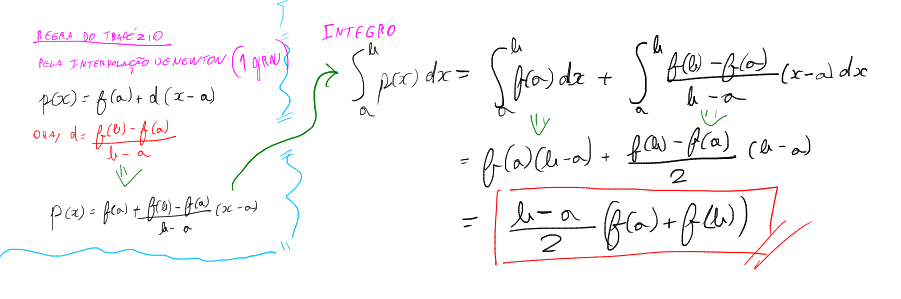 REGRA DO TRAPÉZIO
PELA INTERPOLAÇÃO DE NEWTON (1 GRAU)
p(x) = f(a) + d (x-a)
ORA, d = \frac{f(b) - f(a)}{b-a}
p(x) = f(a) + \frac{f(b) - f(a)}{b-a} (x-a)
INTEGRO
\int_a^b p(x) dx = \int_a^b f(a) dx + \int_a^b \frac{f(b) - f(a)}{b-a} (x-a) dx
= f(a)(b-a) + \frac{f(b) - f(a)}{2} (b-a)
= \frac{b-a}{2} (f(a) + f(b))